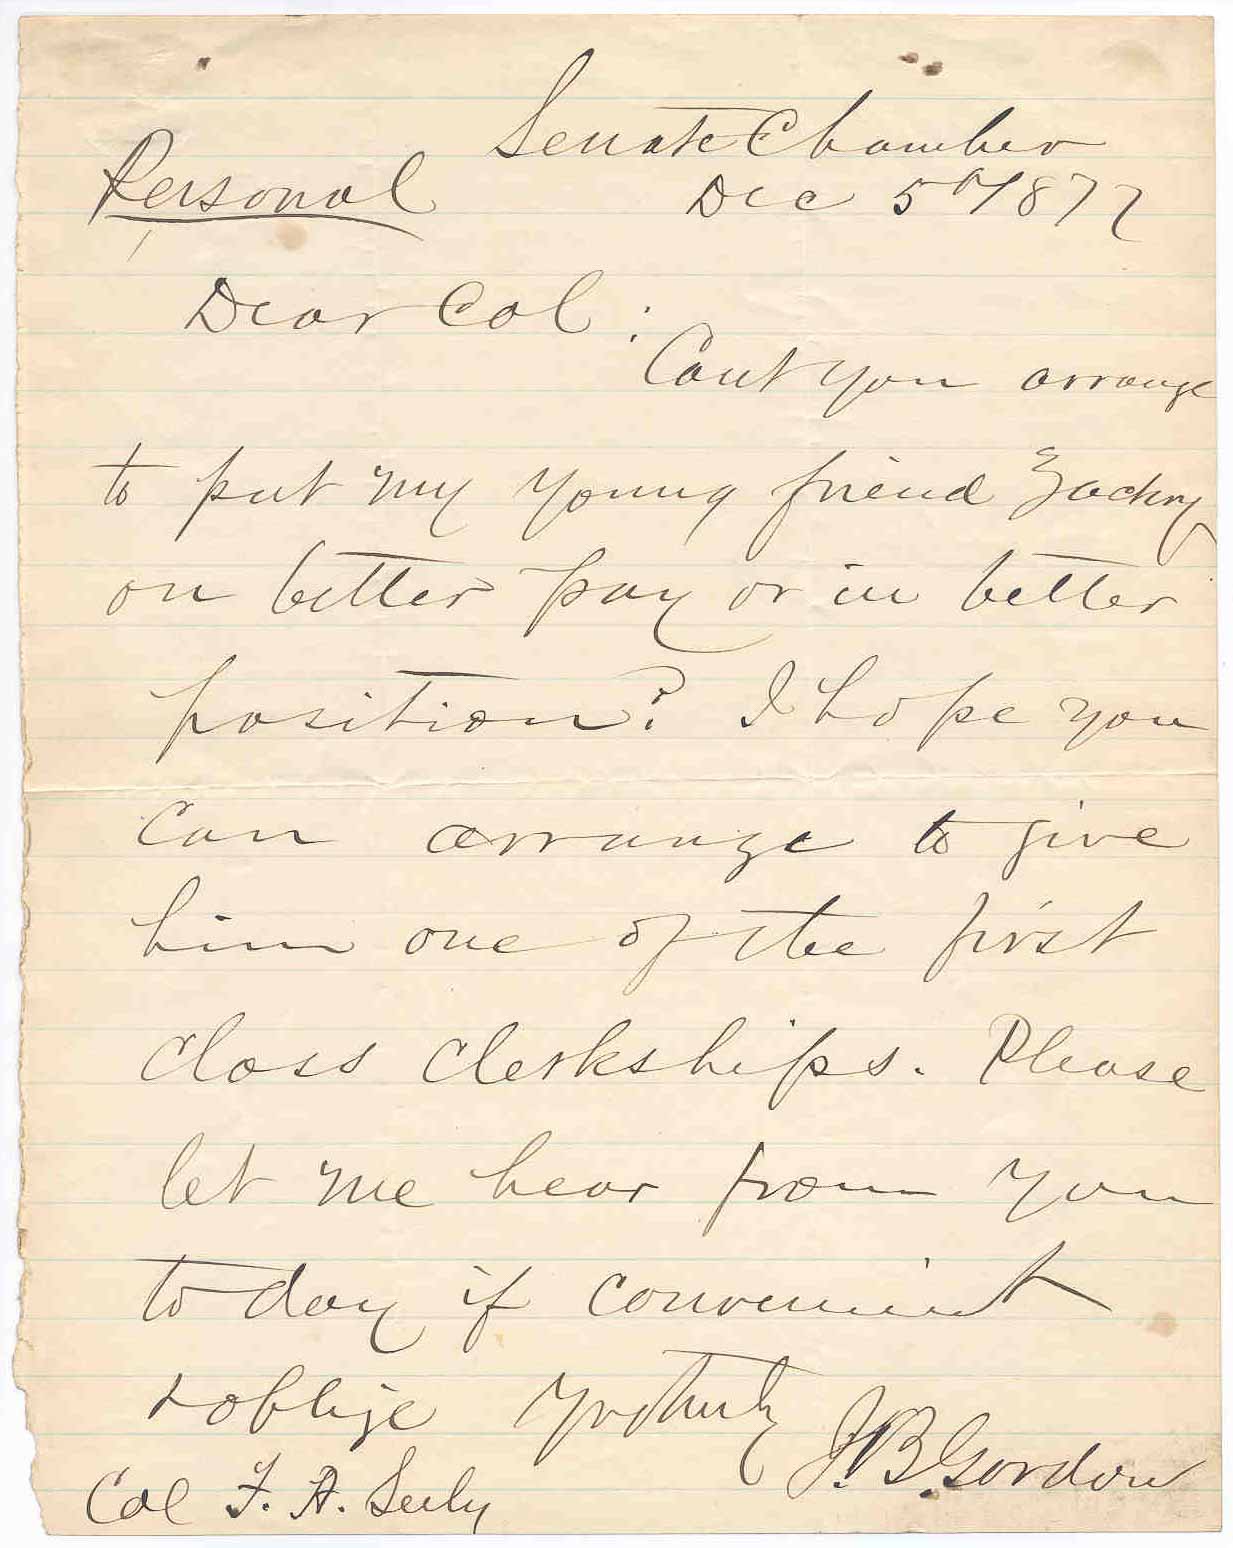 Senate Chamber
Personal
Dec 5th 1877
Dear Col:
Cant you arrange
to put my young friend Zachry
on better pay or in better
position? I hope you
can arrange to give
him one of the first
class clerkships. Please
let me hear from you
to day if convenient
& oblige Yrs truly
J.B. Gordon
Col F. A. Seely